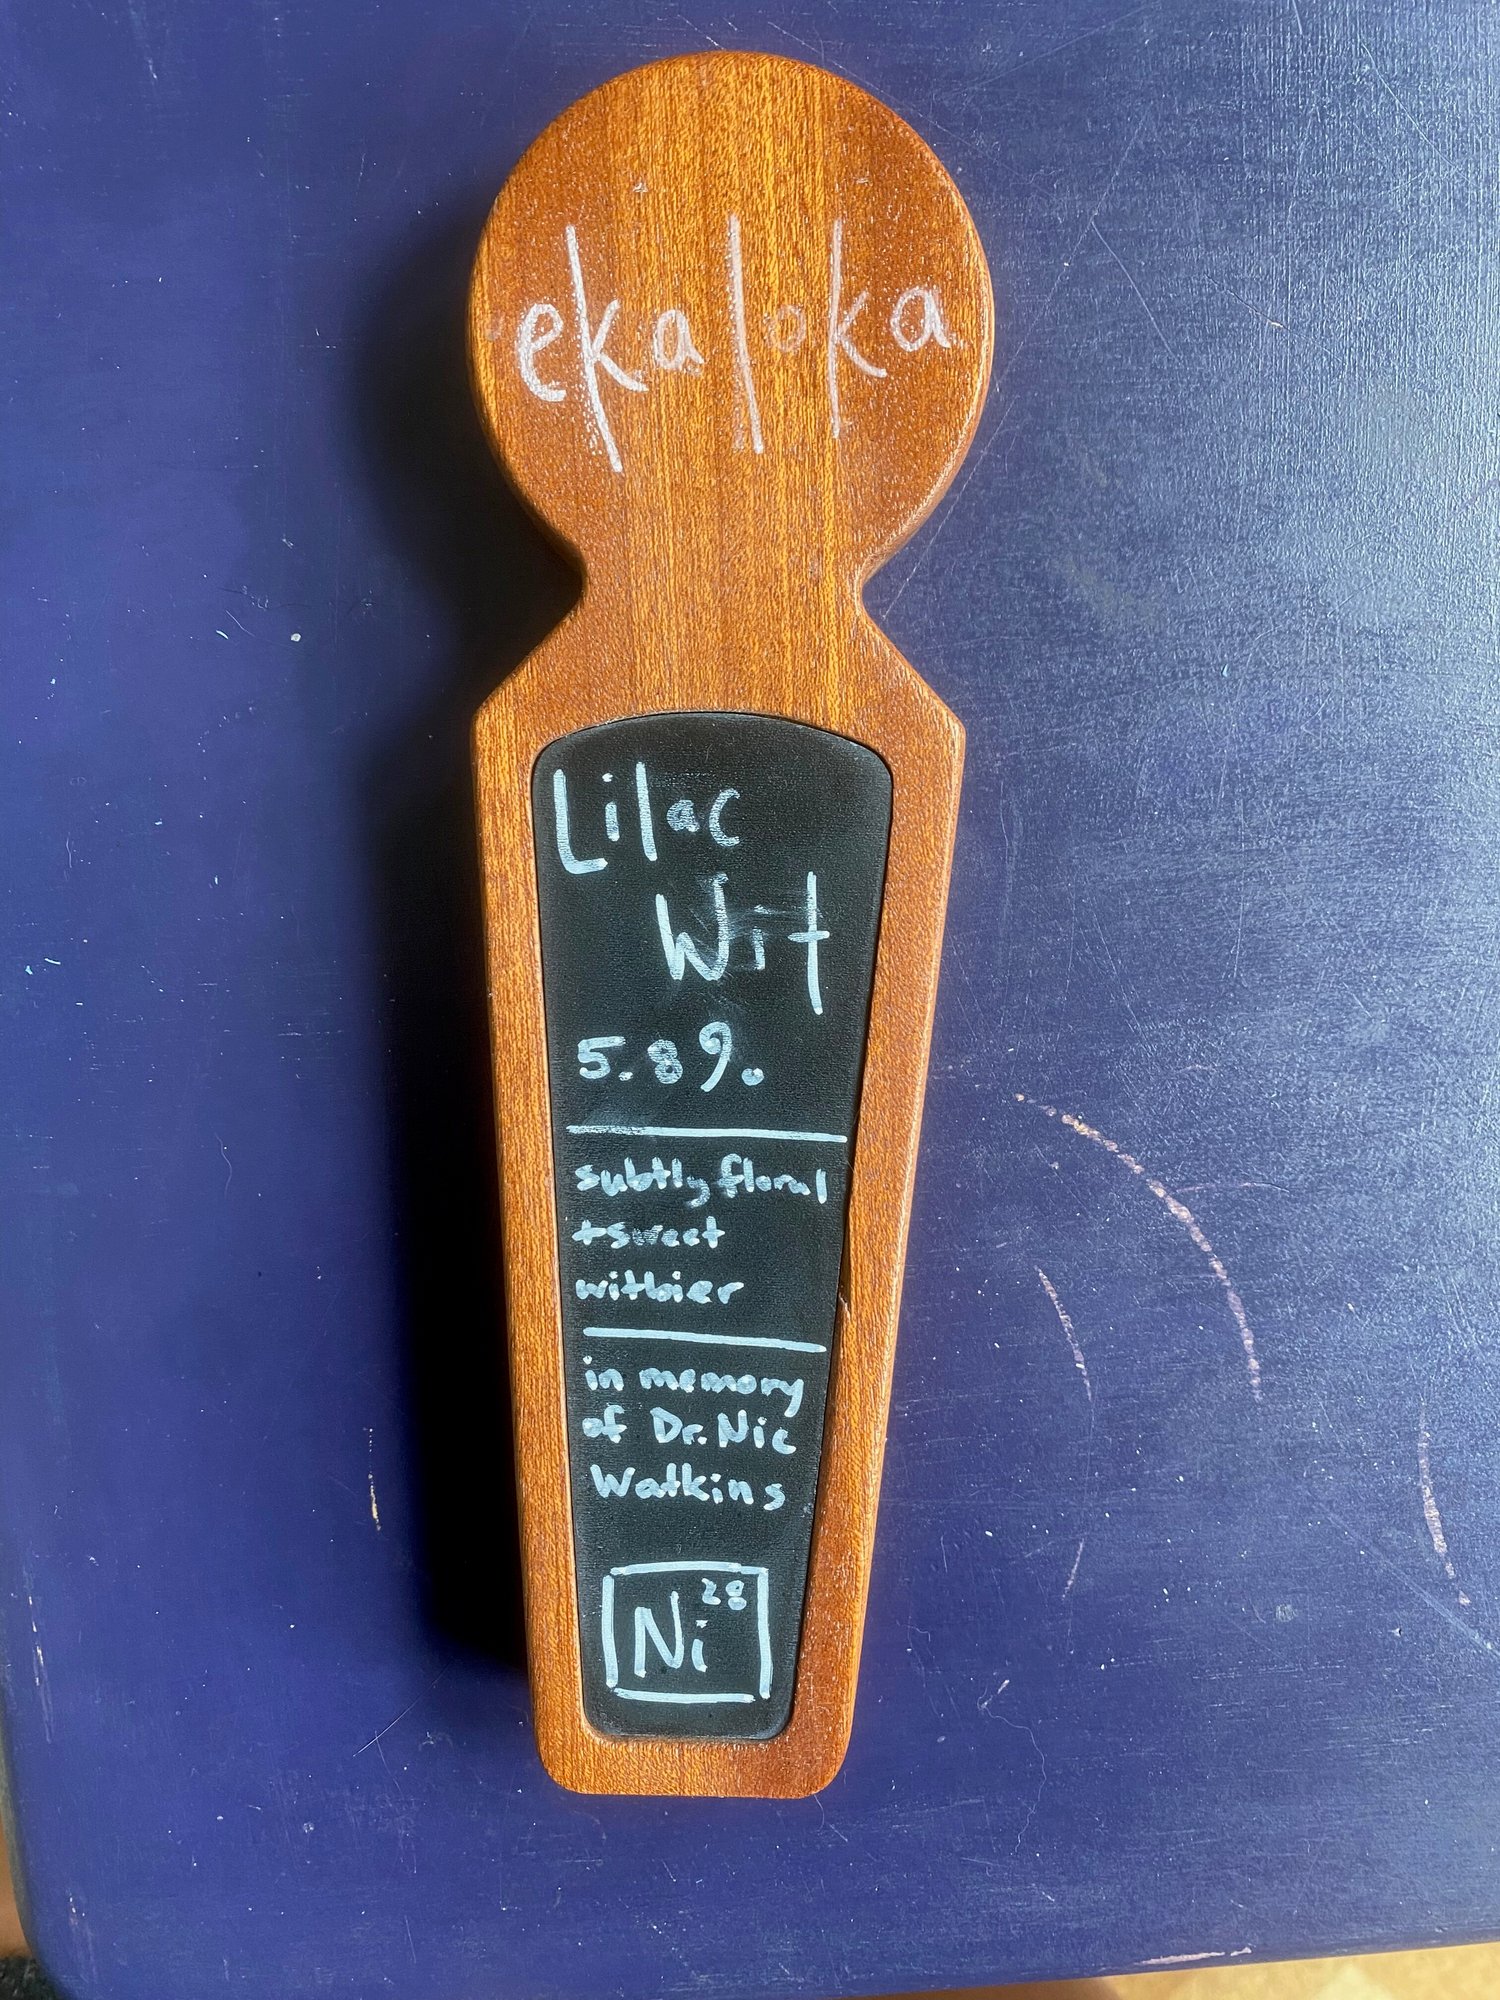 ekaloka
Lilac
Wit
5.8%
subtly floral
+sweet
witbier
in memory
of Dr. Nic
Watkins
28
Ni